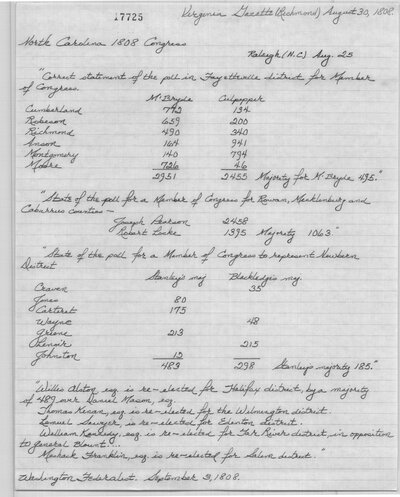 17725
Virginia Gazette (Richmond) August 30, 1808.
North Carolina 1808 Congress
Raleigh (N.C.) Aug. 25
"Correct statement of the poll in Fayetteville district for Member
of Congress.
McBryde Culpepper
Cumberland 772 134
Robeson 659 200
Richmond 490 340
Anson 164 941
Montgomery 140 794
Moore 726 46
2951 2455 Majority for McBryde 495."
"State of the poll for a Member of Congress for Rowan, Mecklenburg and
Cabarrus counties —
Joseph Pearson 2458
Robert Locke 1395 Majority 1063."
"State of the poll for a Member of Congress to represent Newbern
District
Stanly's maj Blackledge's maj.
Craven 35
Jones 80
Carteret 175
Wayne 48
Greene 213
Lenoir 215
Johnston 15
483 298 Stanly's majority 185."
"Willis Alston, esq. is re-elected for Halifax district, by a majority
of 489 over Daniel Mason, esq.
Thomas Kenan, esq. is re-elected for the Wilmington district.
Lemuel Sawyer, is re-elected for Edenton district.
William Kennedy, esq. is re-elected for Tar River district, in opposition
to general Blount...
Meshack Franklin, esq. is re-elected for Salem district."
Washington Federalist. September 3, 1808.